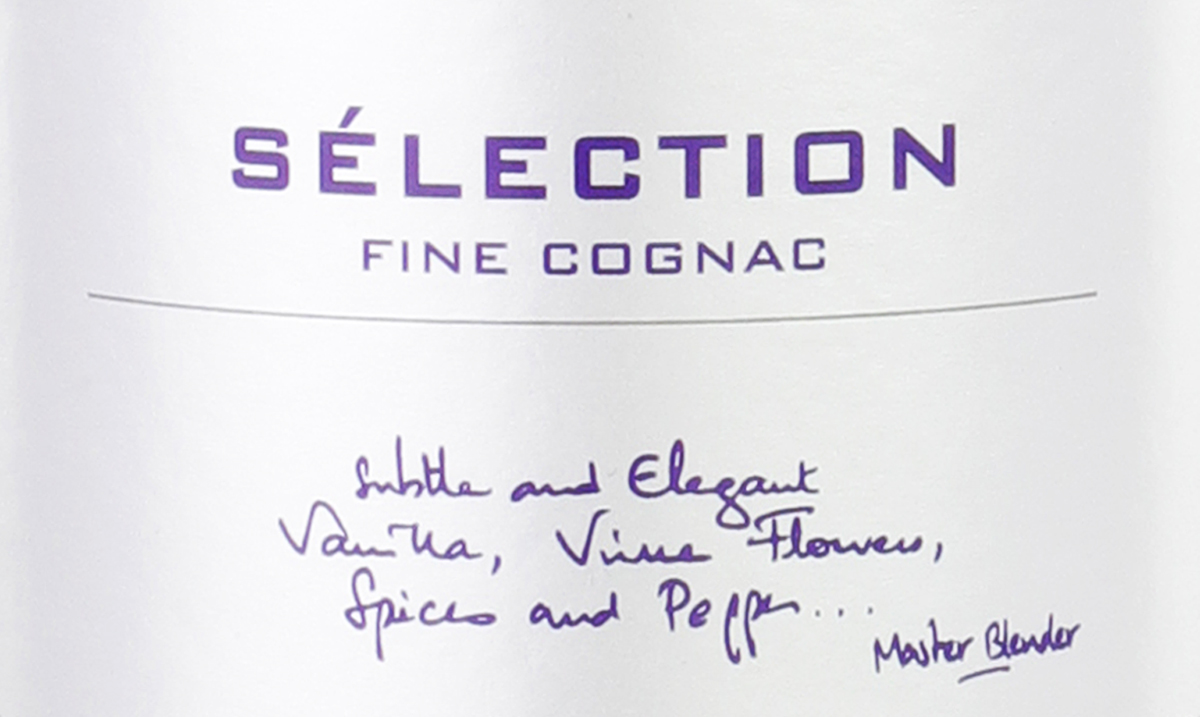 SÉLECTION
FINE COGNAC
Subtle and Elegant
Vanilla, Vine Flowers,
Spices and Pepper...
Master Blender